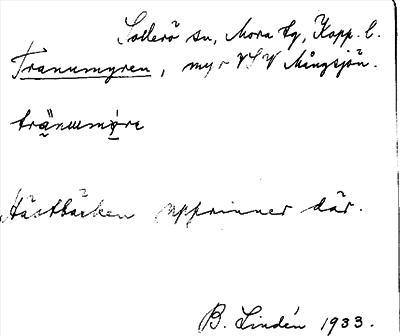 Sollerö sn, Mora tg, Kopp. l.
Tranumyren, myr VSV Mångsjön.
Hästbäcken upprinner där.
B. Lindén 1933.